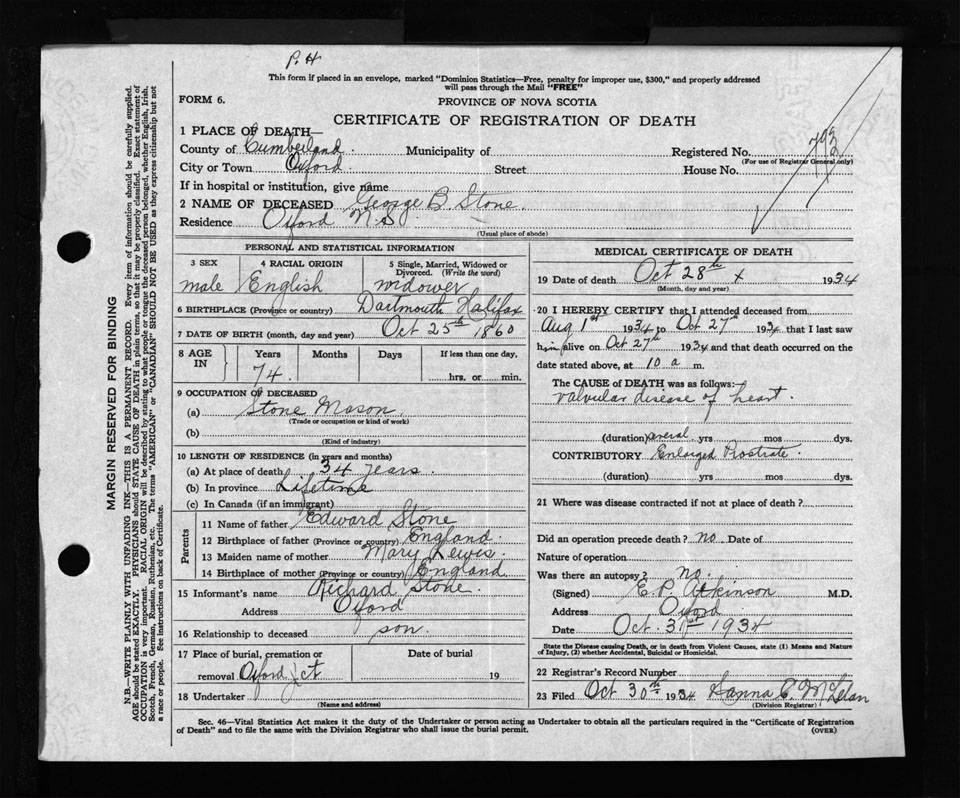 P. H
This form if placed in an envelope, marked "Dominion Statistics—Free, penalty for improper use, $300," and properly addressed
will pass through the Mail "FREE"
FORM 6.
PROVINCE OF NOVA SCOTIA
CERTIFICATE OF REGISTRATION OF DEATH
1 PLACE OF DEATH—
County of Cumberland. Municipality of Registered No. 792
(For use of Registrar General only)
City or Town Oxford. Street House No.
If in hospital or institution, give name
2 NAME OF DECEASED George B. Stone.
Residence Oxford N.S
(Usual place of abode)
PERSONAL AND STATISTICAL INFORMATION
3 SEX
male
4 RACIAL ORIGIN
English
5 Single, Married, Widowed or
Divorced. (Write the word)
widower
6 BIRTHPLACE (Province or country) Dartmouth Halifax
7 DATE OF BIRTH (month, day and year) Oct 25th 1860
8 AGE IN
Years Months Days If less than one day,
74. hrs. or min.
9 OCCUPATION OF DECEASED
(a) Stone Mason
(Trade or occupation or kind of work)
(b)
(Kind of industry)
10 LENGTH OF RESIDENCE (in years and months)
(a) At place of death 34 years.
(b) In province Lifetime
(c) In Canada (if an immigrant)
Parents
11 Name of father Edward Stone
12 Birthplace of father (Province or country) England.
13 Maiden name of mother Mary Lewis.
14 Birthplace of mother (Province or country) England
15 Informant's name Richard Stone.
Address Oxford
16 Relationship to deceased son.
17 Place of burial, cremation or Date of burial
removal Oxford Jct 19
18 Undertaker
(Name and address)
MEDICAL CERTIFICATE OF DEATH
19 Date of death Oct 28th x 1934
(Month, day and year)
20 I HEREBY CERTIFY that I attended deceased from
Aug 1st 1934 to Oct 27th 1934 that I last saw
him alive on Oct 27th 1934 and that death occurred on the
date stated above, at 10 a m.
The CAUSE of DEATH was as follows:—
valvular disease of heart.
(duration) several yrs mos dys.
CONTRIBUTORY Enlarged Prostrate.
(duration) yrs mos dys.
21 Where was disease contracted if not at place of death?
Did an operation precede death? no. Date of
Nature of operation
Was there an autopsy? no.
(Signed) E. P. Atkinson M.D.
Address Oxford
Date Oct. 31st 1934
State the Disease causing Death, or in death from Violent Causes, state (1) Means and Nature
of Injury, (2) whether Accidental, Suicidal or Homicidal.
22 Registrar's Record Number
23 Filed Oct 30th 1934 Hanna C. McLelan
(Division Registrar)
Sec. 46—Vital Statistics Act makes it the duty of the Undertaker or person acting as Undertaker to obtain all the particulars required in the "Certificate of Registration
of Death" and to file the same with the Division Registrar who shall issue the burial permit. (OVER)
MARGIN RESERVED FOR BINDING
N.B.—WRITE PLAINLY WITH UNFADING INK—THIS IS A PERMANENT RECORD. Every item of information should be carefully supplied.
AGE should be stated EXACTLY. PHYSICIANS should STATE CAUSE OF DEATH in plain terms, so that it may be properly classified. Exact statement of
OCCUPATION is very important. RACIAL ORIGIN will be described by stating to what people or tongue the deceased person belonged, whether English, Irish,
Scotch, French, German, Russian, Ruthenian, etc. The terms "AMERICAN" or "CANADIAN" SHOULD NOT BE USED as they express citizenship but not
a race or people. See instructions on back of Certificate.